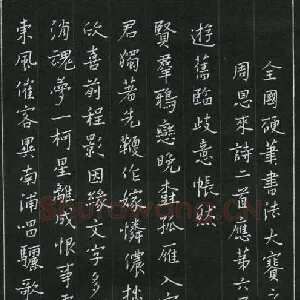 東風催客黑南浦唱驪歌
消魂夢一柯星離成恨事
欣喜前程影因緣文字多
君獨著先鞭作嫁憐儂拙
賢羣鴉戀晚 孤雁入
遊舊臨歧意悵然
周恩來詩二首應第六
全國硬筆書法大賽之